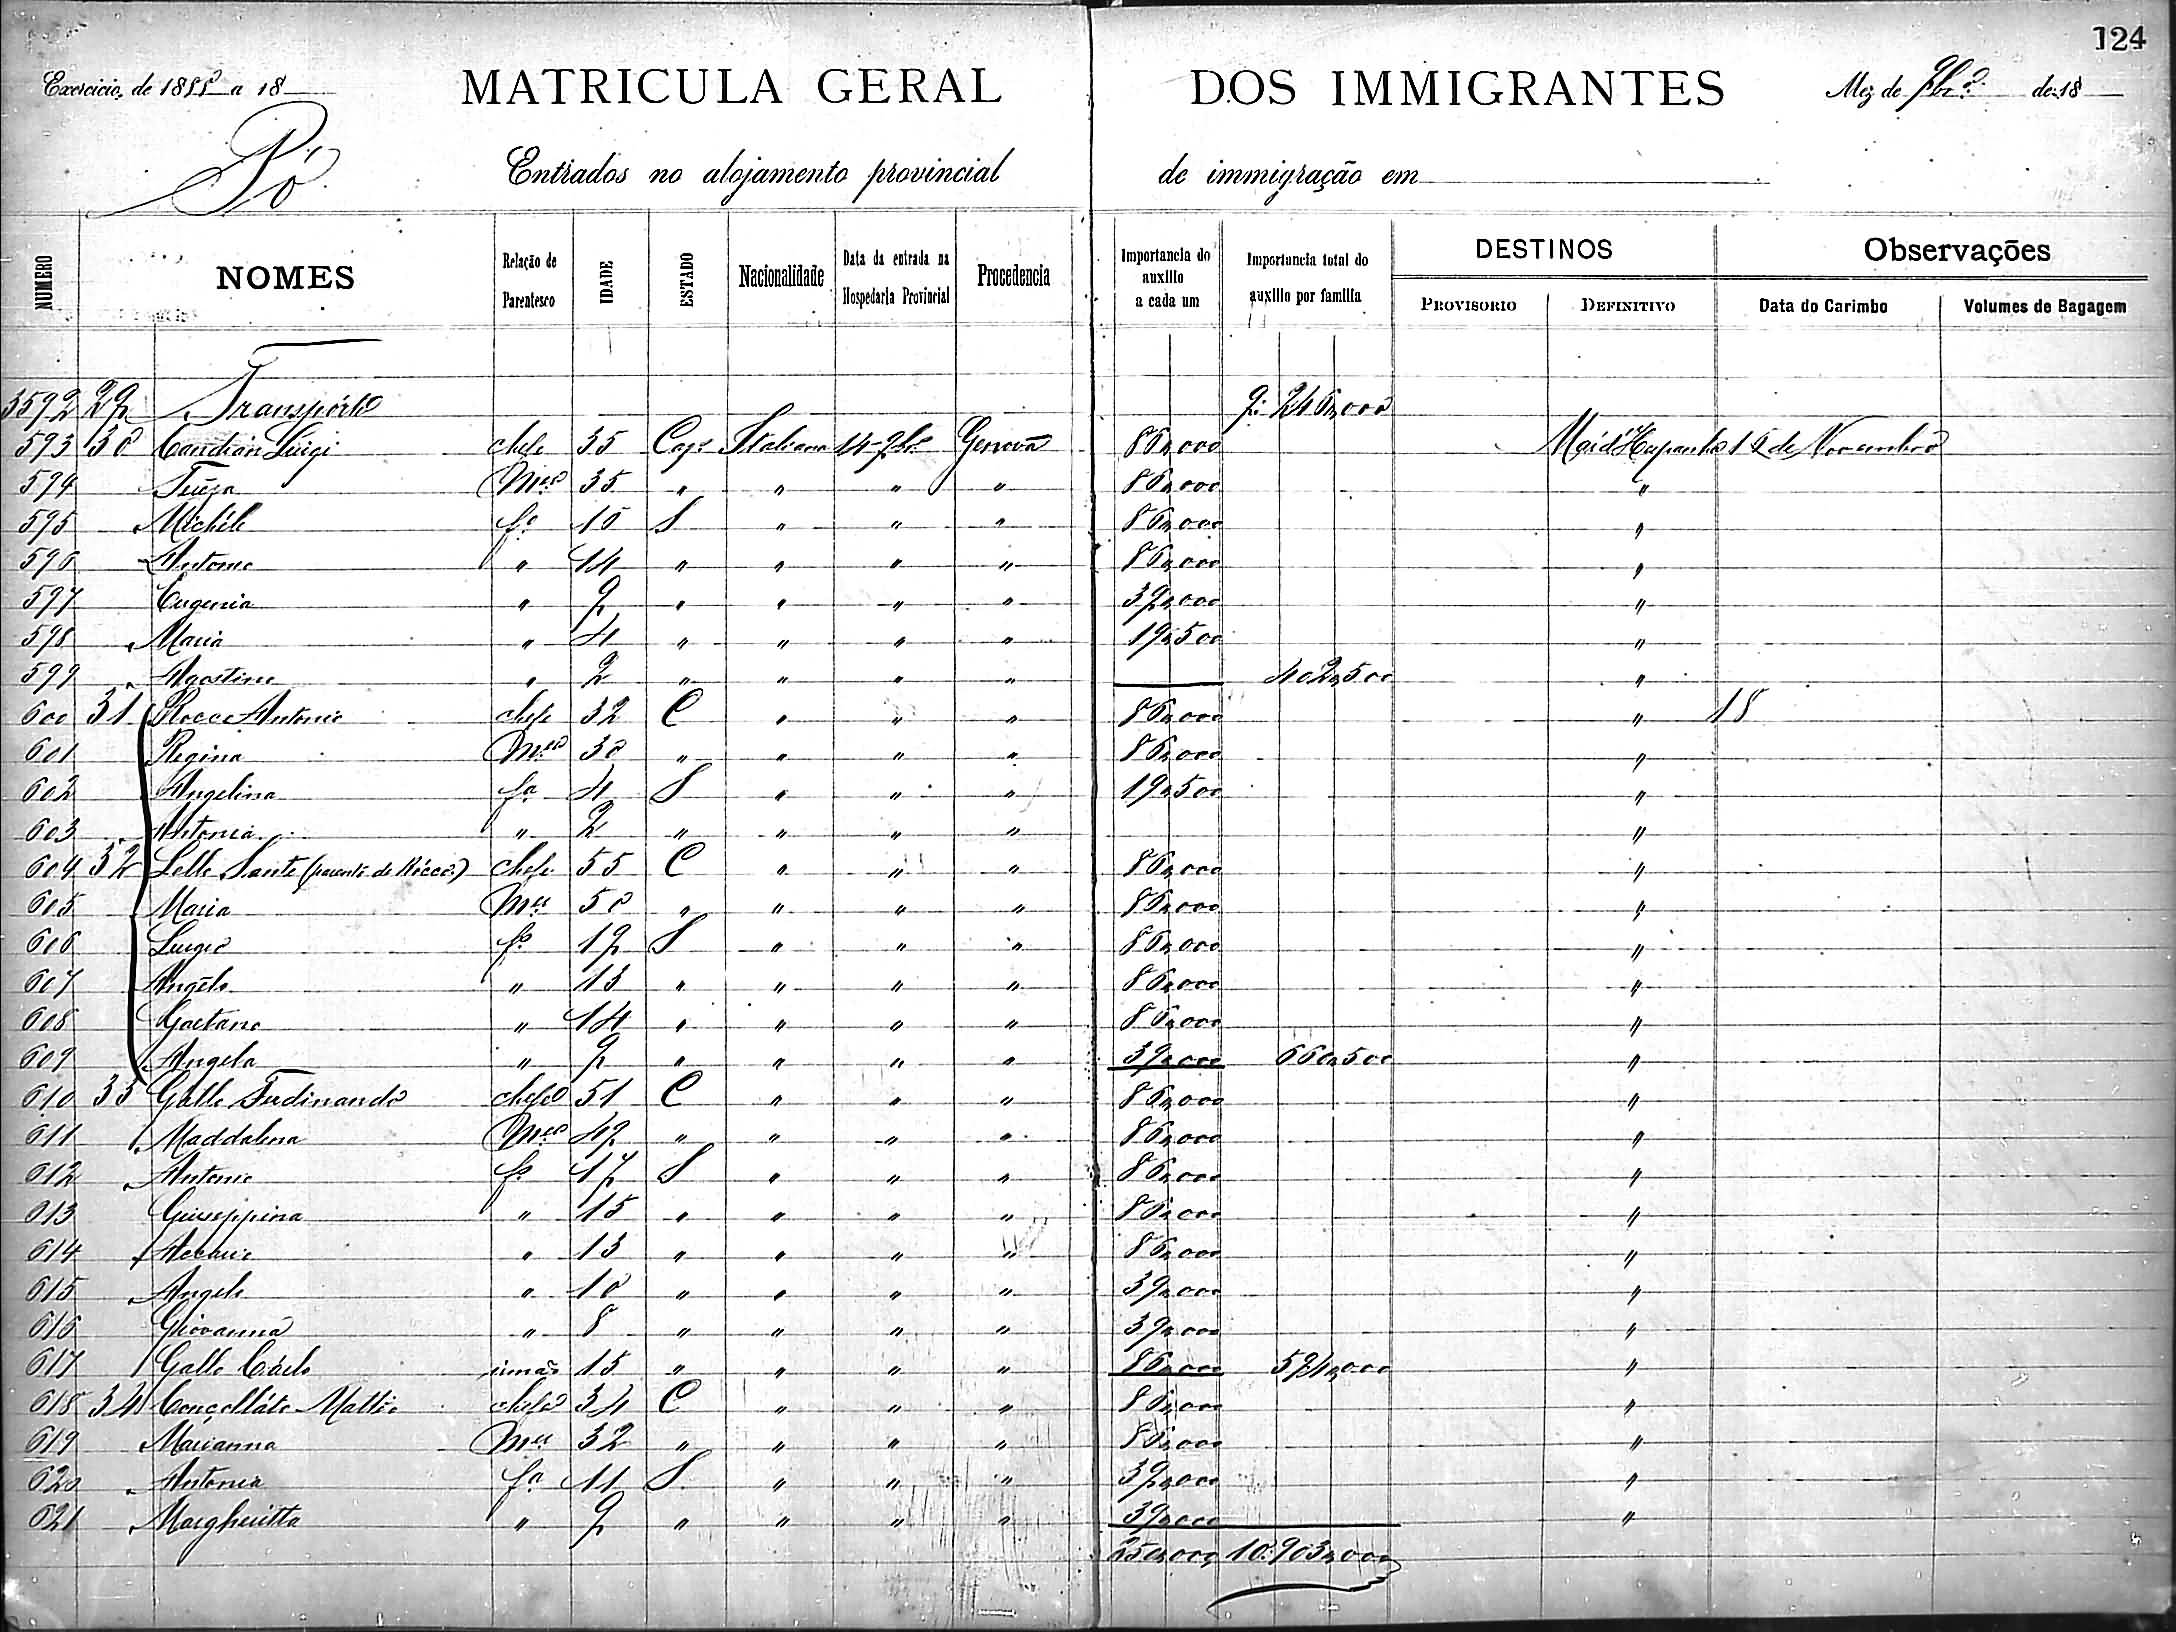 124
Exercicio de 1888 a 18
MATRICULA GERAL DOS IMMIGRANTES
Mez de 9br.o de 18
Pó
Entrados no alojamento provincial de immigração em
NUMERO NOMES Relação de Parentesco IDADE ESTADO Nacionalidade Data da entrada na Hospedaria Provincial Procedencia Importancia do auxilio a cada um Importancia total do auxilio por familia DESTINOS PROVISORIO DEFINITIVO Observações Data do Carimbo Volumes de Bagagem
3592 29 Transporte 9: 246,000
593 30 Luigi chefe 35 Cas.o Italiana 14-9br.o Genova 86,000 14 de Novembro
594 Mer 35 " " " " 86,000 "
595 Michele fo 15 S " " " 86,000 "
596 Antonio " 14 " " " " 86,000 "
597 Eugenia " 9 " " " " 39,000 "
598 Maria " 4 " " " " 19,500 "
599 Agostino " 2 " " " " 402,500 "
600 31 Rocco Antonio chefe 32 C " " " 86,000 " 18
601 Regina Mer 30 " " " " 86,000 "
602 Angelina fa 4 S " " " 19,500 "
603 Antonia " 2 " " " " "
604 32 Lello Sante (parente de Rocco) chefe 55 C " " " 86,000 "
605 Maria Mer 50 " " " " 86,000 "
606 Luigi fo 19 S " " " 86,000 "
607 Angelo " 13 " " " " 86,000 "
608 Gaetano " 14 " " " " 86,000 "
609 Angela " 9 " " " " 39,000 660,500 "
610 33 Gallo Ferdinando chefe 51 C " " " 86,000 "
611 Maddalena Mer 49 " " " " 86,000 "
612 Antonio fo 17 S " " " 86,000 "
613 Giuseppina " 15 " " " " 86,000 "
614 " 13 " " " " 86,000 "
615 Angelo " 10 " " " " 39,000 "
616 Giovanna " 8 " " " " 39,000 "
617 Gallo Carlo irmão 15 " " " " 86,000 594,000 "
618 34 Matteo chefe 34 C " " " 86,000 "
619 Marianna Mer 32 " " " " 86,000 "
620 Antonia fa 11 S " " " 39,000 "
621 Margheritta " 9 " " " " 39,000 "
250,000 10:903,000